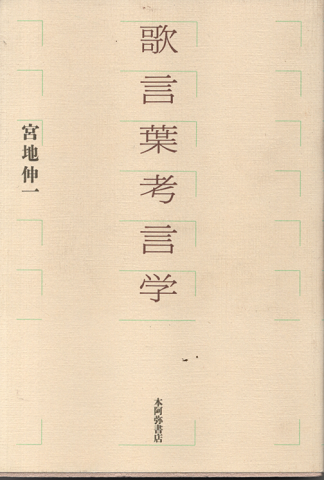 歌言葉考言学
宮地伸一
本阿弥書店